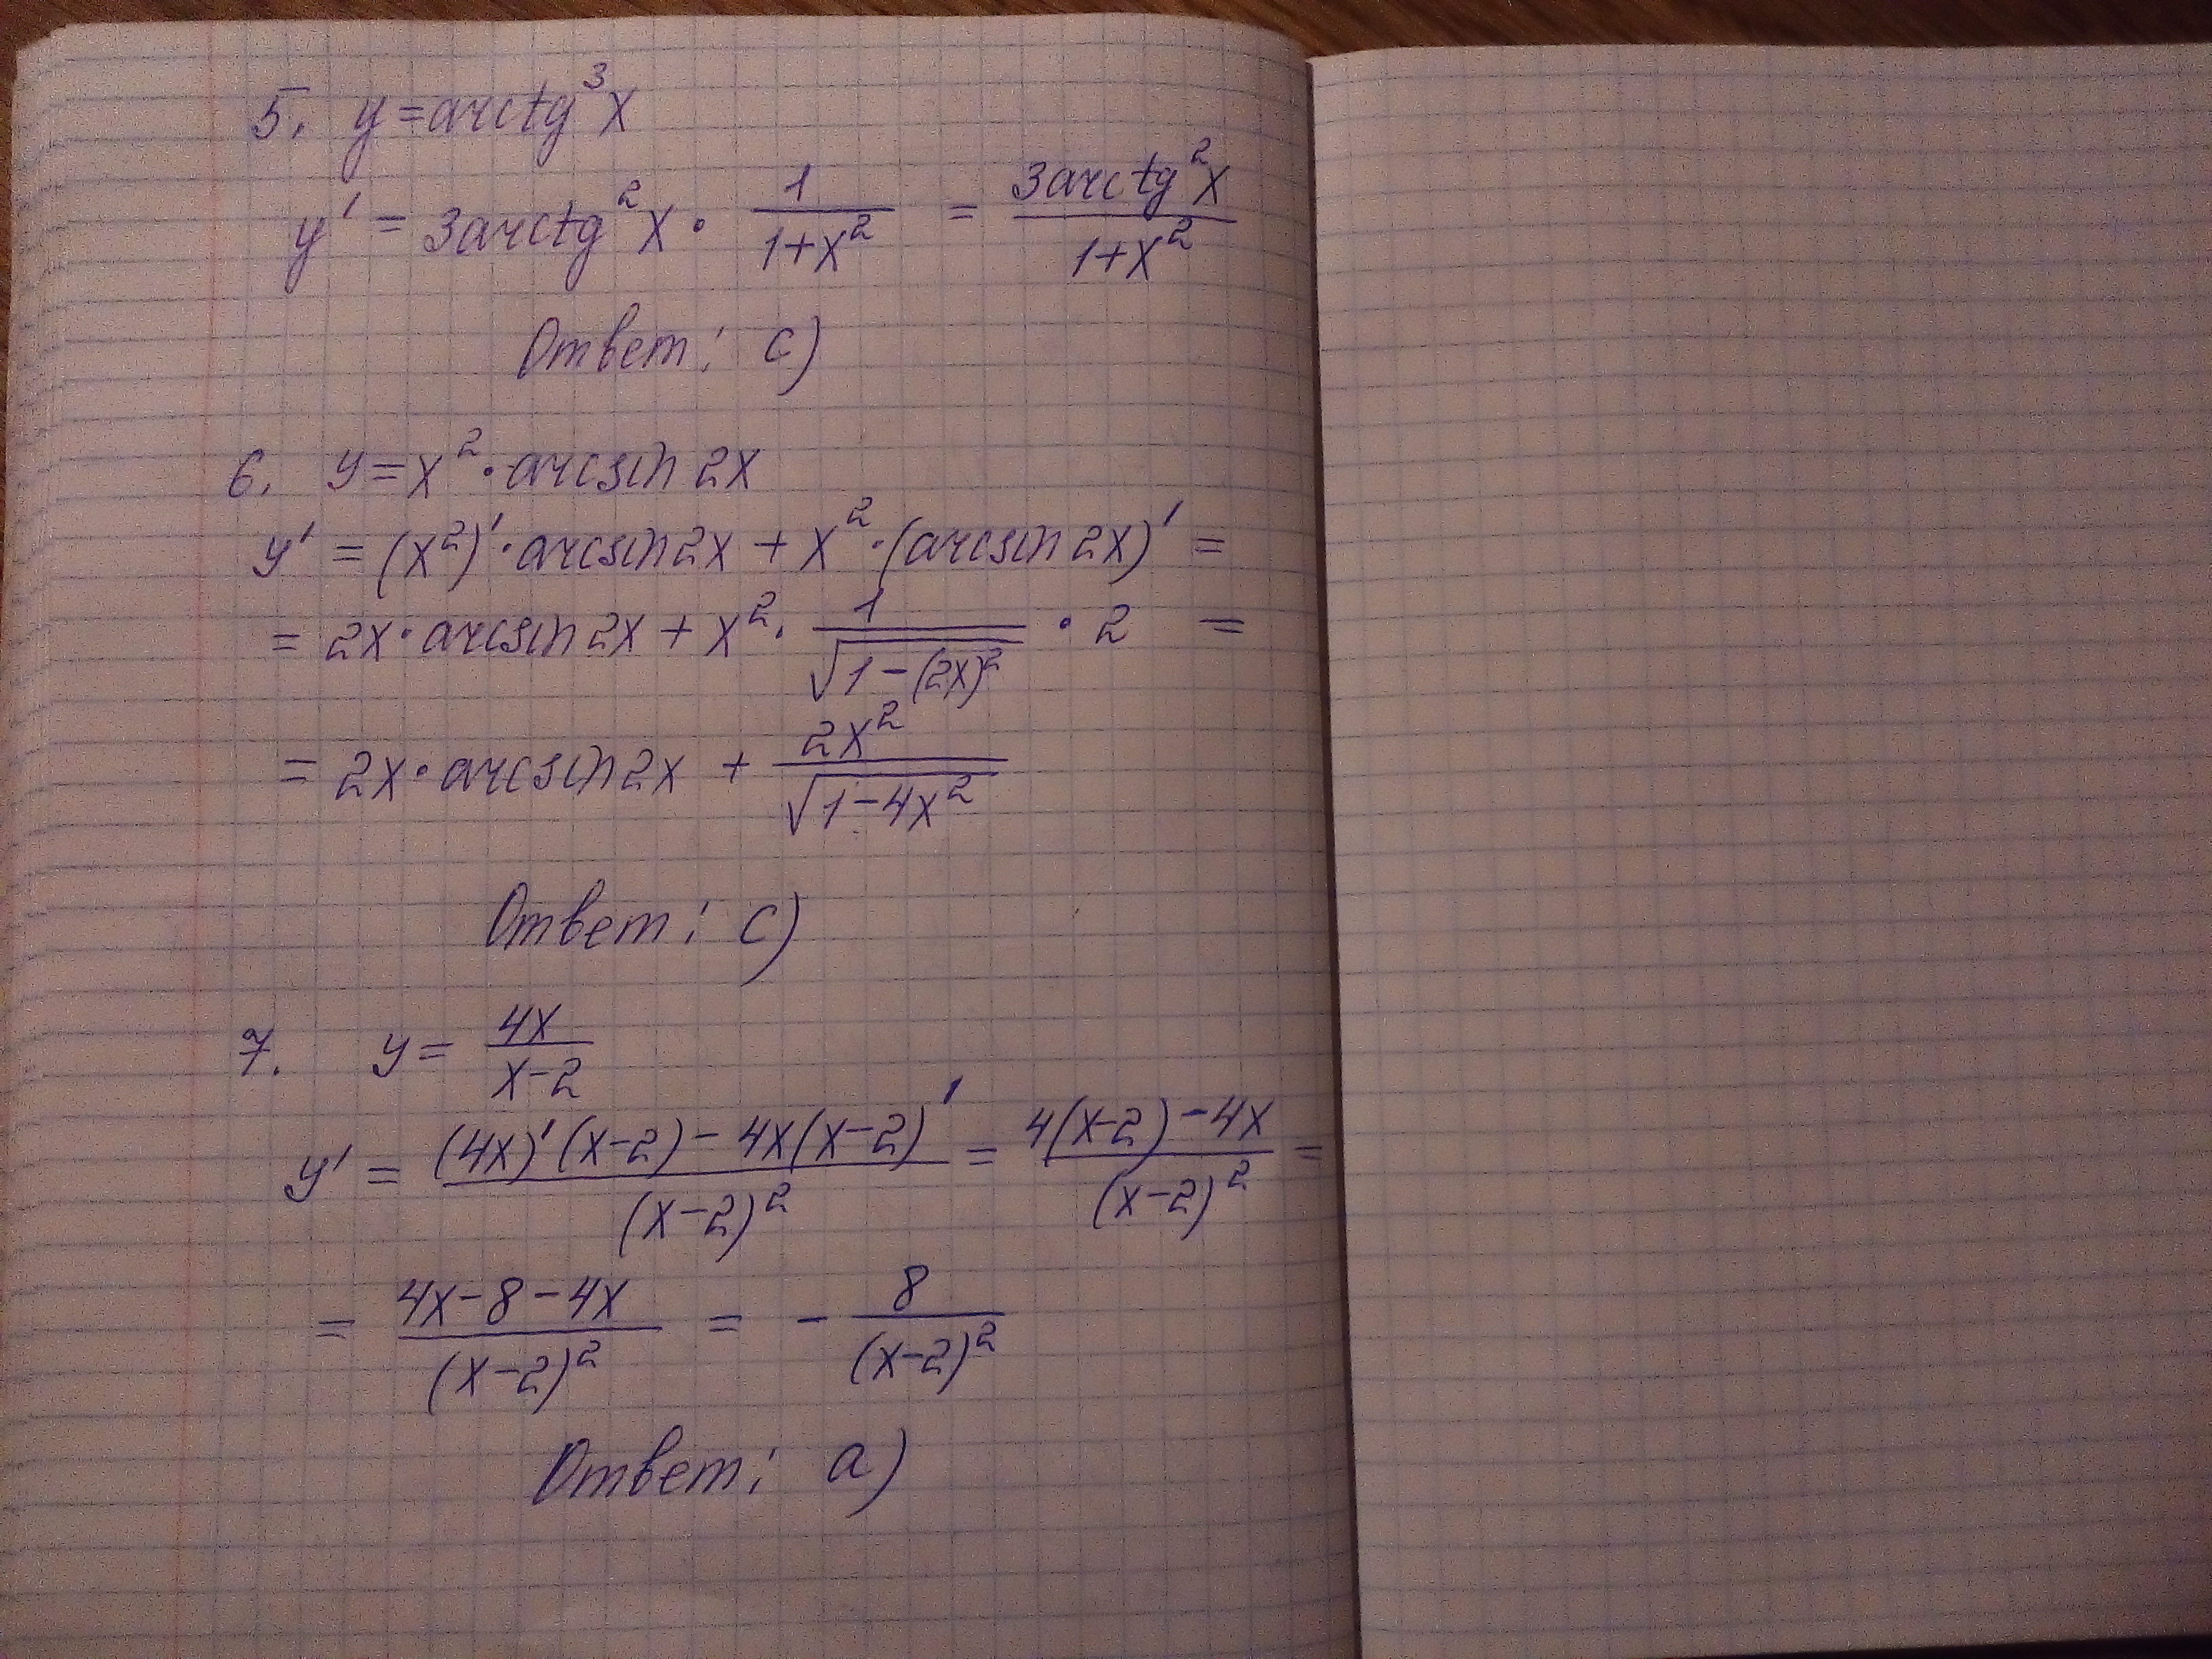 5. y = arctg³x
y' = 3arctg²x · 1/(1+x²) = 3arctg²x/(1+x²)
Ответ: c)
6. y = x² · arcsin 2x
y' = (x²)' · arcsin 2x + x² · (arcsin 2x)' =
= 2x · arcsin 2x + x² · 1/√(1-(2x)²) · 2 =
= 2x · arcsin 2x + 2x²/√(1-4x²)
Ответ: c)
7. y = 4x/(x-2)
y' = ((4x)'(x-2) - 4x(x-2)')/(x-2)² = (4(x-2) - 4x)/(x-2)² =
= (4x-8-4x)/(x-2)² = - 8/(x-2)²
Ответ: a)